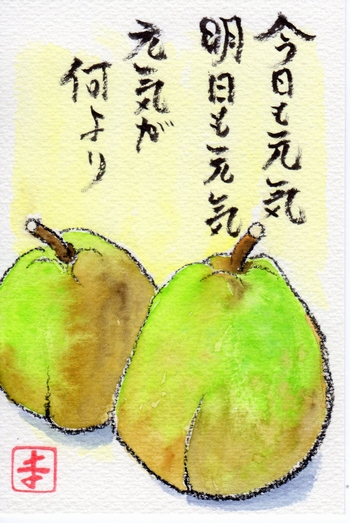 今日も元気
明日も元気
元気が
何より